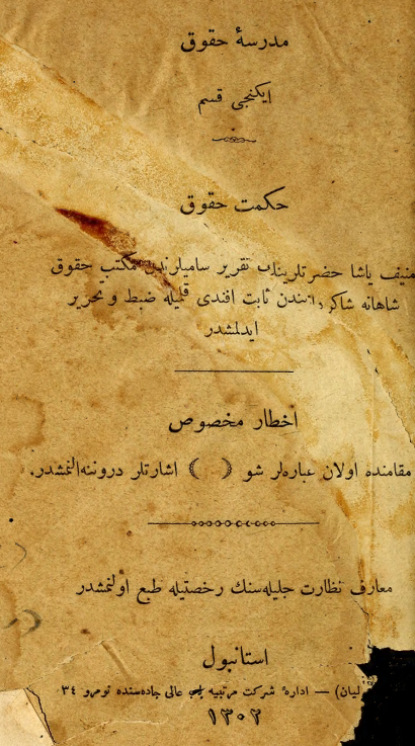 مدرسۀ حقوق
ایکنجی قسم
حکمت حقوق
منیف پاشا حضرتلرینك تقریر سامیلرندن مکتب حقوق
شاهانه شاکردانندن ثابت افندی قلمیله ضبط و تحریر
ایدلمشدر
اخطار مخصوص
مقامنده اولان عباره‌لر شو ( ) اشارتلر دروننه آلنمشدر.
معارف نظارت جلیله‌سنك رخصتیله طبع اولنمشدر
استانبول
لیان) — ادارۀ شرکت مرتبیه باب عالی جاده‌سنده نومرو ٣٤
١٣٠٢